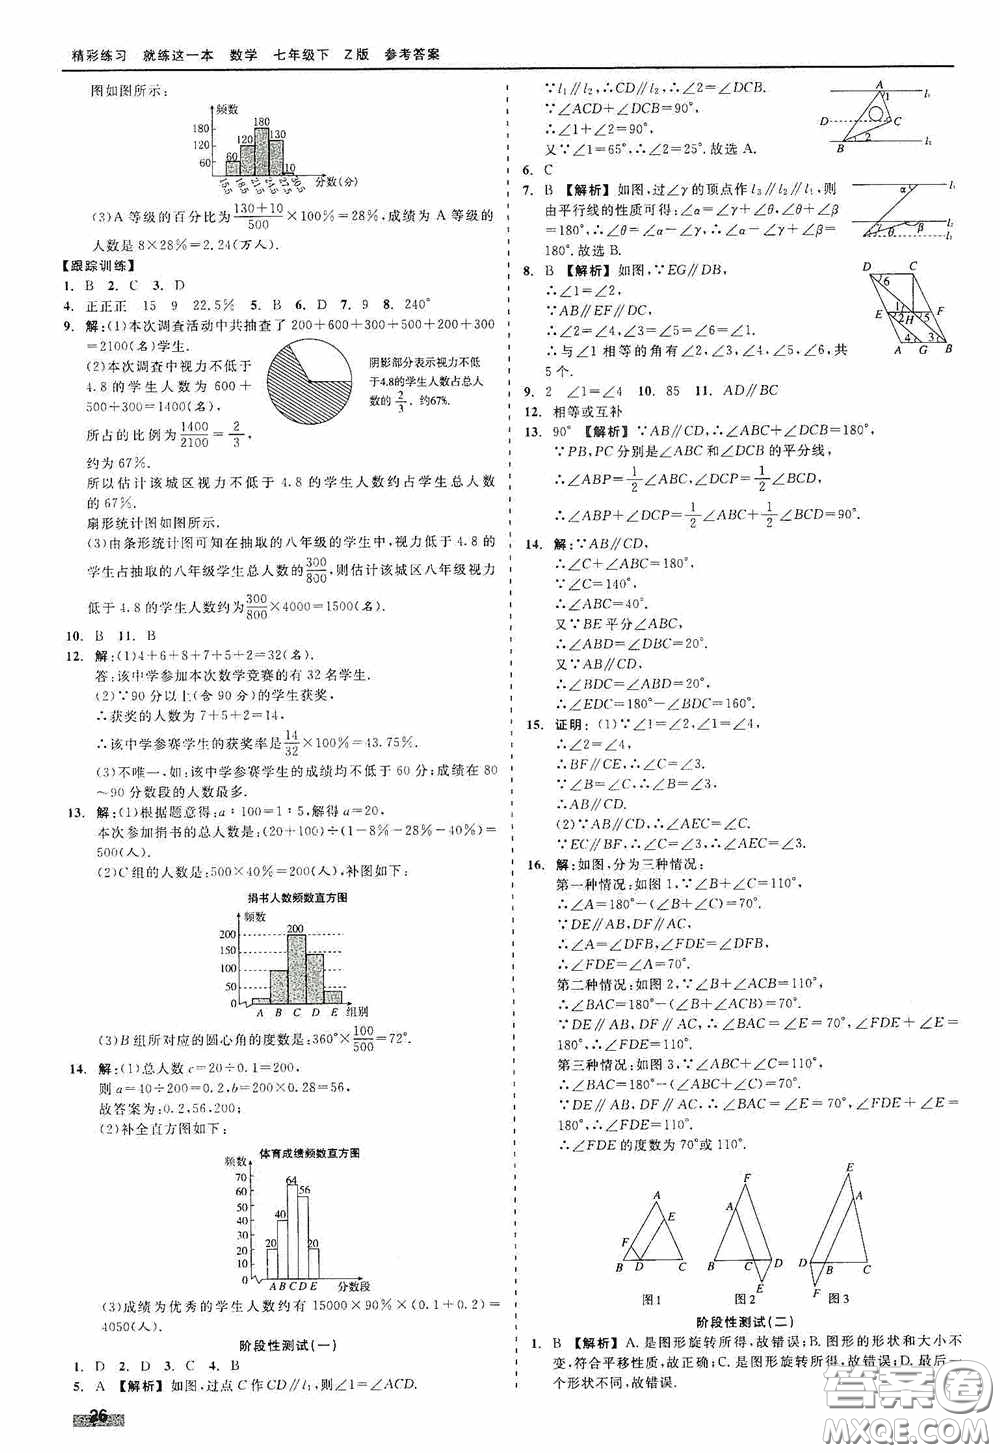 精彩练习 就练这一本 数学 七年级下 Z版 参考答案
图如图所示:
频数
180
180
120
130
120
60
60
10
15.5 18.5 21.5 24.5 27.5 30.5
分数(分)
(3)A等级的百分比为130+10/500×100%=28%,成绩为A等级的
人数是8×28%=2.24(万人).
【跟踪训练】
1. B 2. C 3. D
4. 正正正 15 9 22.5% 5. B 6. D 7. 9 8. 240°
9. 解:(1)本次调查活动中共抽查了200+600+300+500+200+300
=2100(名)学生.
(2)本次调查中视力不低于
4.8的学生人数为600+
500+300=1400(名),
所占的比例为1400/2100=2/3,
约为67%.
阴影部分表示视力不低
于4.8的学生人数占总人
数的2/3,约67%.
所以估计该城区视力不低于4.8的学生人数约占学生总人数
的67%.
扇形统计图如图所示.
(3)由条形统计图可知在抽取的八年级的学生中,视力低于4.8的
学生占抽取的八年级学生总人数的300/800,则估计该城区八年级视力
低于4.8的学生人数约为300/800×4000=1500(名).
10. B 11. B
12. 解:(1)4+6+8+7+5+2=32(名).
答:该中学参加本次数学竞赛的有32名学生.
(2)∵90分以上(含90分)的学生获奖,
∴获奖的人数为7+5+2=14,
∴该中学参赛学生的获奖率是14/32×100%=43.75%.
(3)不唯一,如:该中学参赛学生的成绩均不低于60分;成绩在80
～90分数段的人数最多.
13. 解:(1)根据题意得:a∶100=1∶5,解得a=20,
本次参加捐书的总人数是:(20+100)÷(1-8%-28%-40%)=
500(人).
(2)C组的人数是:500×40%=200(人).补图如下:
捐书人数频数直方图
频数
200
200
150
100
50
0
A B C D E 组别
(3)B组所对应的圆心角的度数是:360°×100/500=72°.
14. 解:(1)总人数c=20÷0.1=200,
则a=40÷200=0.2,b=200×0.28=56,
故答案为:0.2,56,200;
(2)补全直方图如下:
体育成绩频数直方图
频数
70
60
50
40
30
20
10
0
20
40
64
56
20
A B C D E
分数段
(3)成绩为优秀的学生人数约有15000×90%×(0.1+0.2)=
4050(人).
阶段性测试(一)
1. D 2. D 3. C 4. B
5. A 【解析】如图,过点C作CD∥l1,则∠1=∠ACD.
26
∵l1∥l2,∴CD∥l2,∴∠2=∠DCB.
∵∠ACD+∠DCB=90°,
∴∠1+∠2=90°,
又∵∠1=65°,∴∠2=25°.故选A.
A
1
l1
D
C
B
2
l2
6. C
7. B 【解析】如图,过∠γ的顶点作l3∥l1∥l2,则
由平行线的性质可得:∠α=∠γ+∠θ,∠θ+∠β
=180°,∴∠θ=∠α-∠γ,∴∠α-∠γ+∠β=
180°.故选B.
α
θ
β
8. B 【解析】如图,∵EG∥DB,
∴∠1=∠2,∠3=∠4.
∵AB∥EF∥DC,
∴∠1=∠6,∠2=∠4,∠3=∠5,
∴与∠1相等的角有∠2,∠3,∠4,∠5,∠6,共
5个.
D C
6
E 2 1 H 5 F
4 3
A G B
9. 2 ∠1=∠4 10. 85 11. AD∥BC
12. 相等或互补
13. 90° 【解析】∵AB∥CD,∴∠ABC+∠DCB=180°,
∵PB,PC分别是∠ABC和∠DCB的平分线,
∴∠ABP=1/2∠ABC,∠DCP=1/2∠BCD,
∴∠ABP+∠DCP=1/2∠ABC+1/2∠BCD=90°.
14. 解:∵AB∥CD,
∴∠C+∠ABC=180°,
∵∠C=140°,
∴∠ABC=40°.
又∵BE平分∠ABC,
∴∠ABD=∠DBC=20°.
又∵AB∥CD,
∴∠BDC=∠ABD=20°,
∴∠EDC=180°-∠BDC=160°.
15. 证明:(1)∵∠1=∠2,∠1=∠4,
∴∠2=∠4,
∴BF∥CE,∴∠C=∠3.
∵∠B=∠C,∴∠B=∠3,
∴AB∥CD.
(2)∵AB∥CD,∴∠AEC=∠C.
∵EC∥BF,∴∠C=∠3,∴∠AEC=∠3.
16. 解:如图,分为三种情况:
第一种情况:如图1,∵∠B+∠C=110°,
∴∠A=180°-(∠B+∠C)=70°.
∵DE∥AB,DF∥AC,
∴∠A=∠DFB,∠FDE=∠DFB,
∴∠FDE=∠A=70°.
第二种情况:如图2,∵∠B+∠ACB=110°,
∴∠BAC=180°-(∠B+∠ACB)=70°.
∵DE∥AB,DF∥AC,∴∠BAC=∠E=70°,∠FDE+∠E=
180°,∴∠FDE=110°.
第三种情况:如图3,∵∠ABC+∠C=110°,
∴∠BAC=180°-(∠ABC+∠C)=70°.
∵DE∥AB,DF∥AC,∴∠BAC=∠E=70°,∠FDE+∠E=
180°,∴∠FDE=110°.
∴∠FDE的度数为70°或110°.
A
E
F
B D C
图1
F
A
B C D
E
图2
E
A
D B C
F
图3
阶段性测试(二)
1. B 【解析】A.是图形旋转所得,故错误;B.图形的形状和大小不变
形,符合平移性质,故正确;C.是图形旋转所得,故错误;D.最后一个
个形状不同,故错误.
答案圈
MXQE.COM